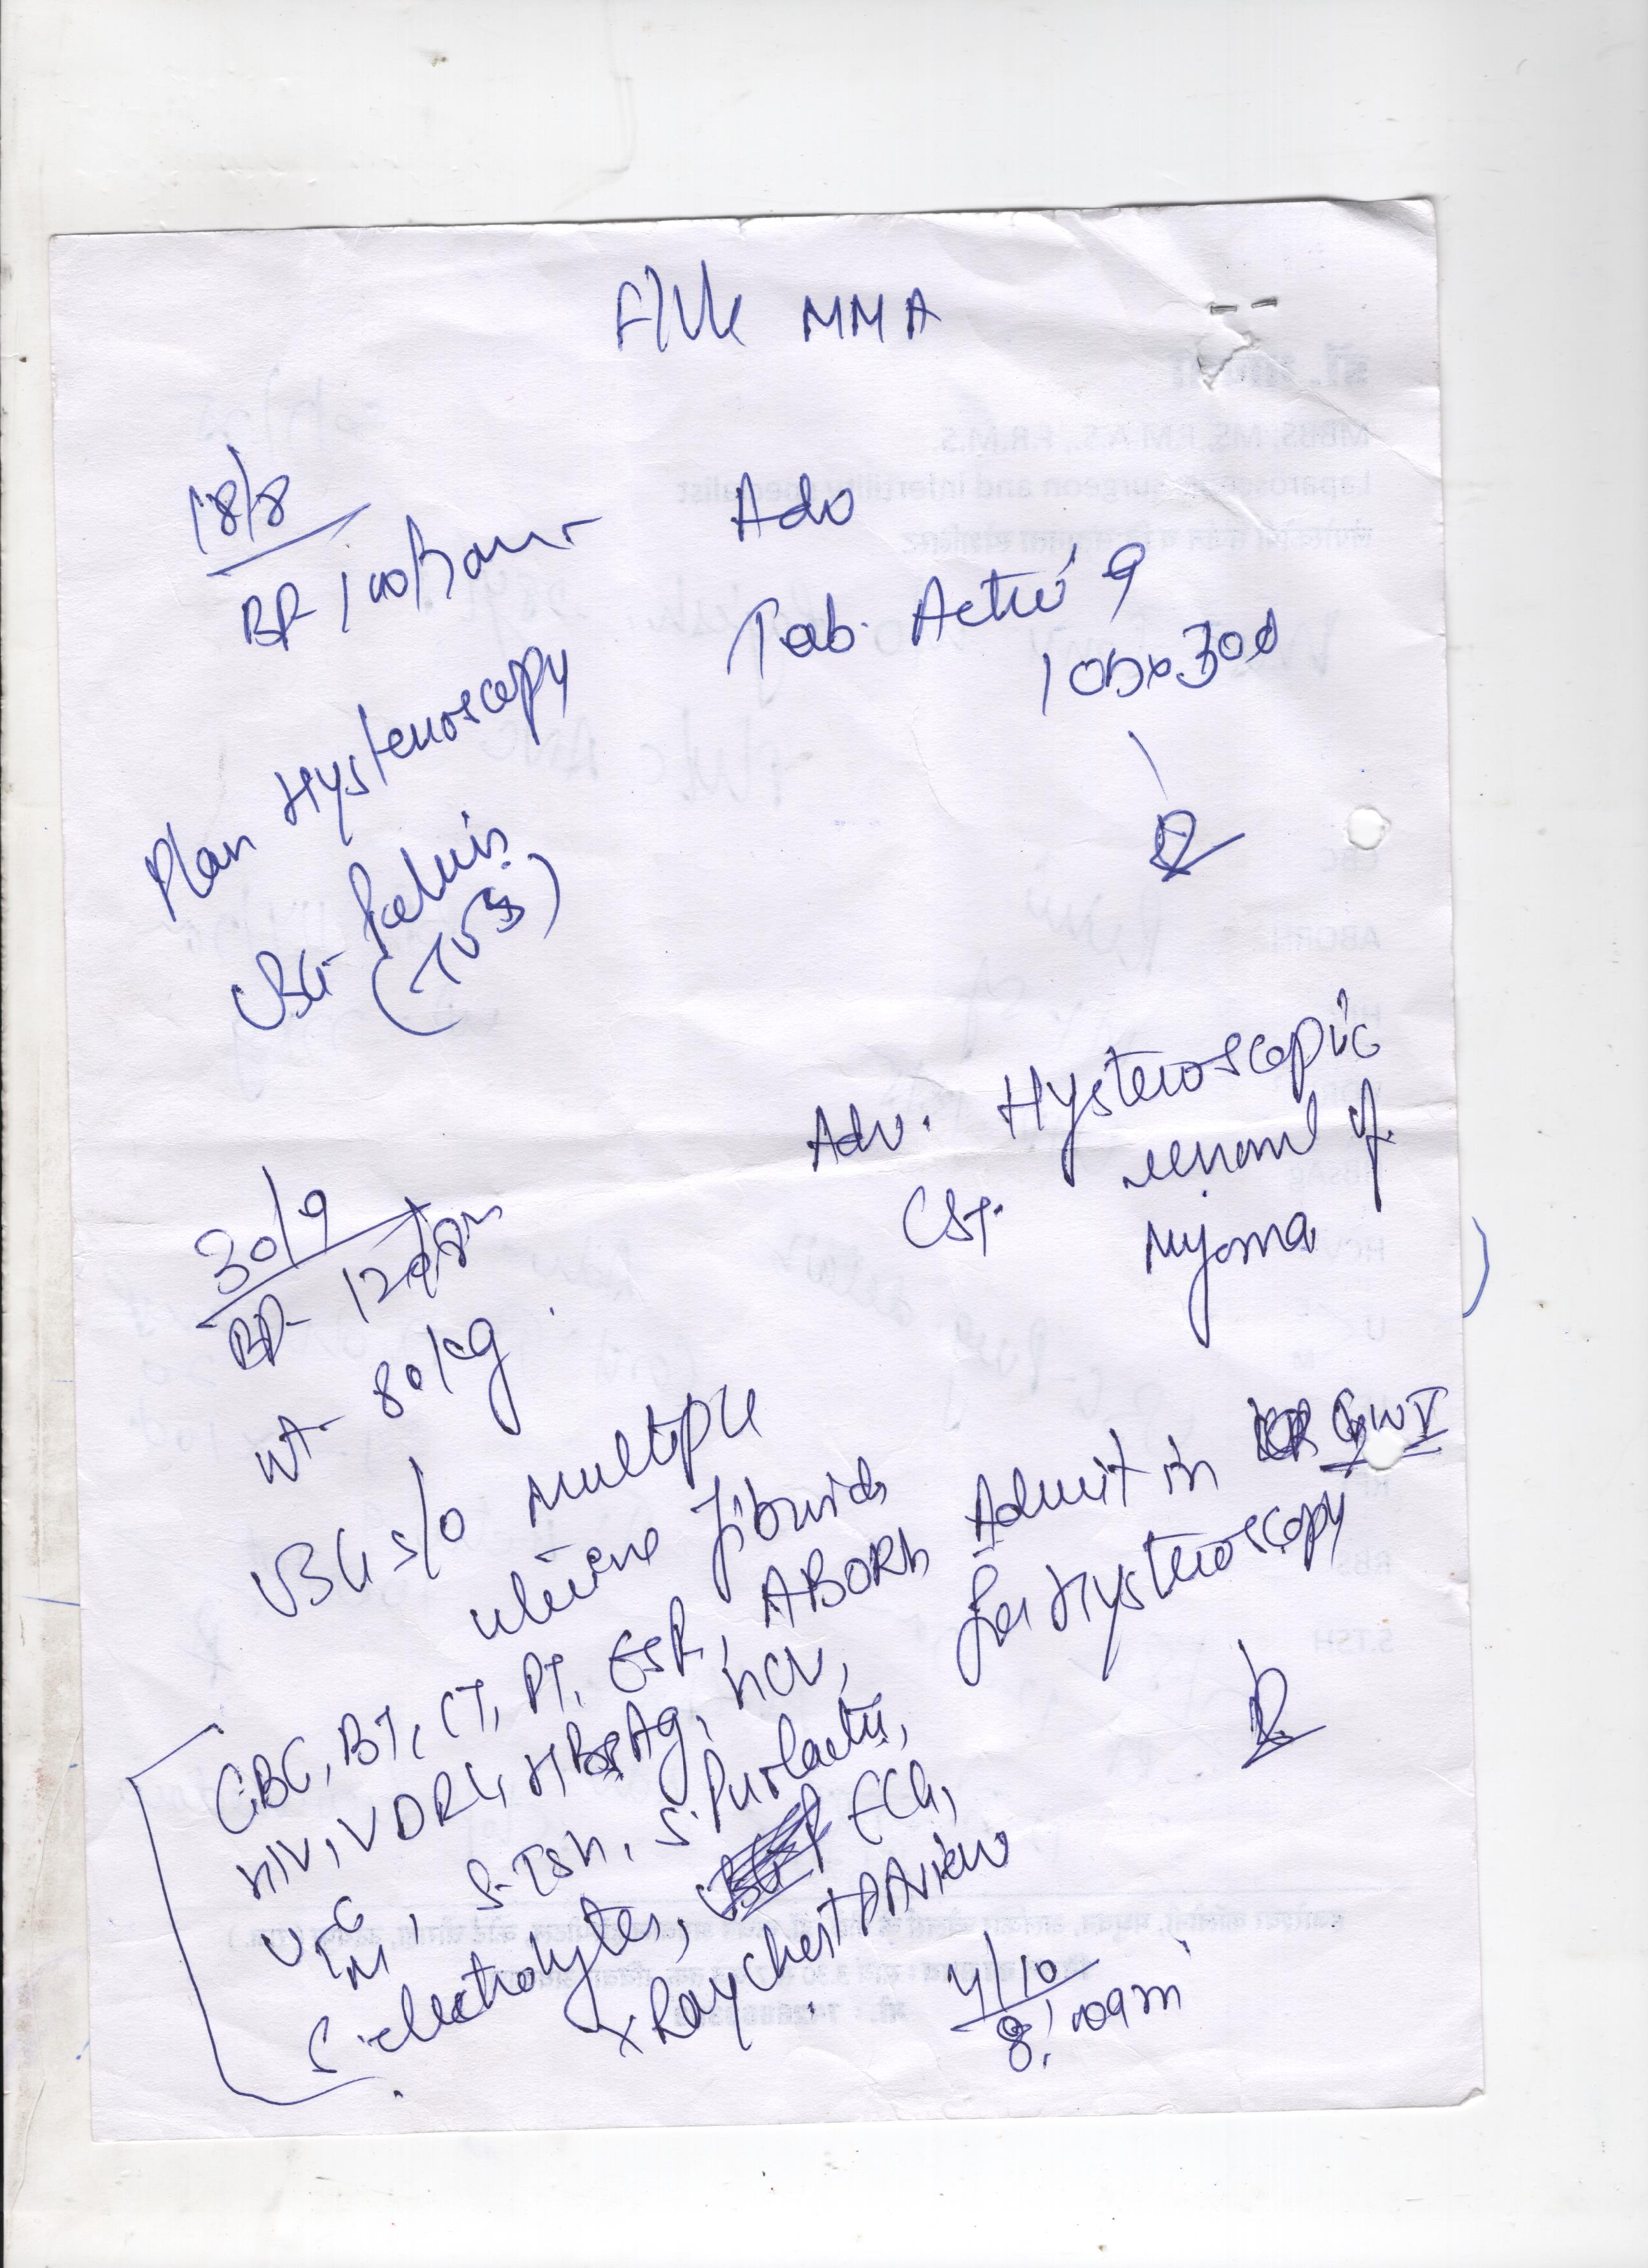 MMA
18/8
BP-
Plan Hysteroscopy
USG- Pelvis
(TVS)
Adv
Tab. Activ 9
1 OD x 30d
Adv. Hysteroscopic
removal of
Myoma
CST.
30/9
BP-
Wt- 80kg
USG s/o Multiple
uterine fibroids
Admit in
for Hysteroscopy
CBC, BT, CT, PT, ESR, ABORh
HIV, VDRL, HBsAg, HCV,
U C M, S.TSH, S.Prolactin,
S.electrolytes, ECG,
X Ray chest PA view
4/10
8:00am